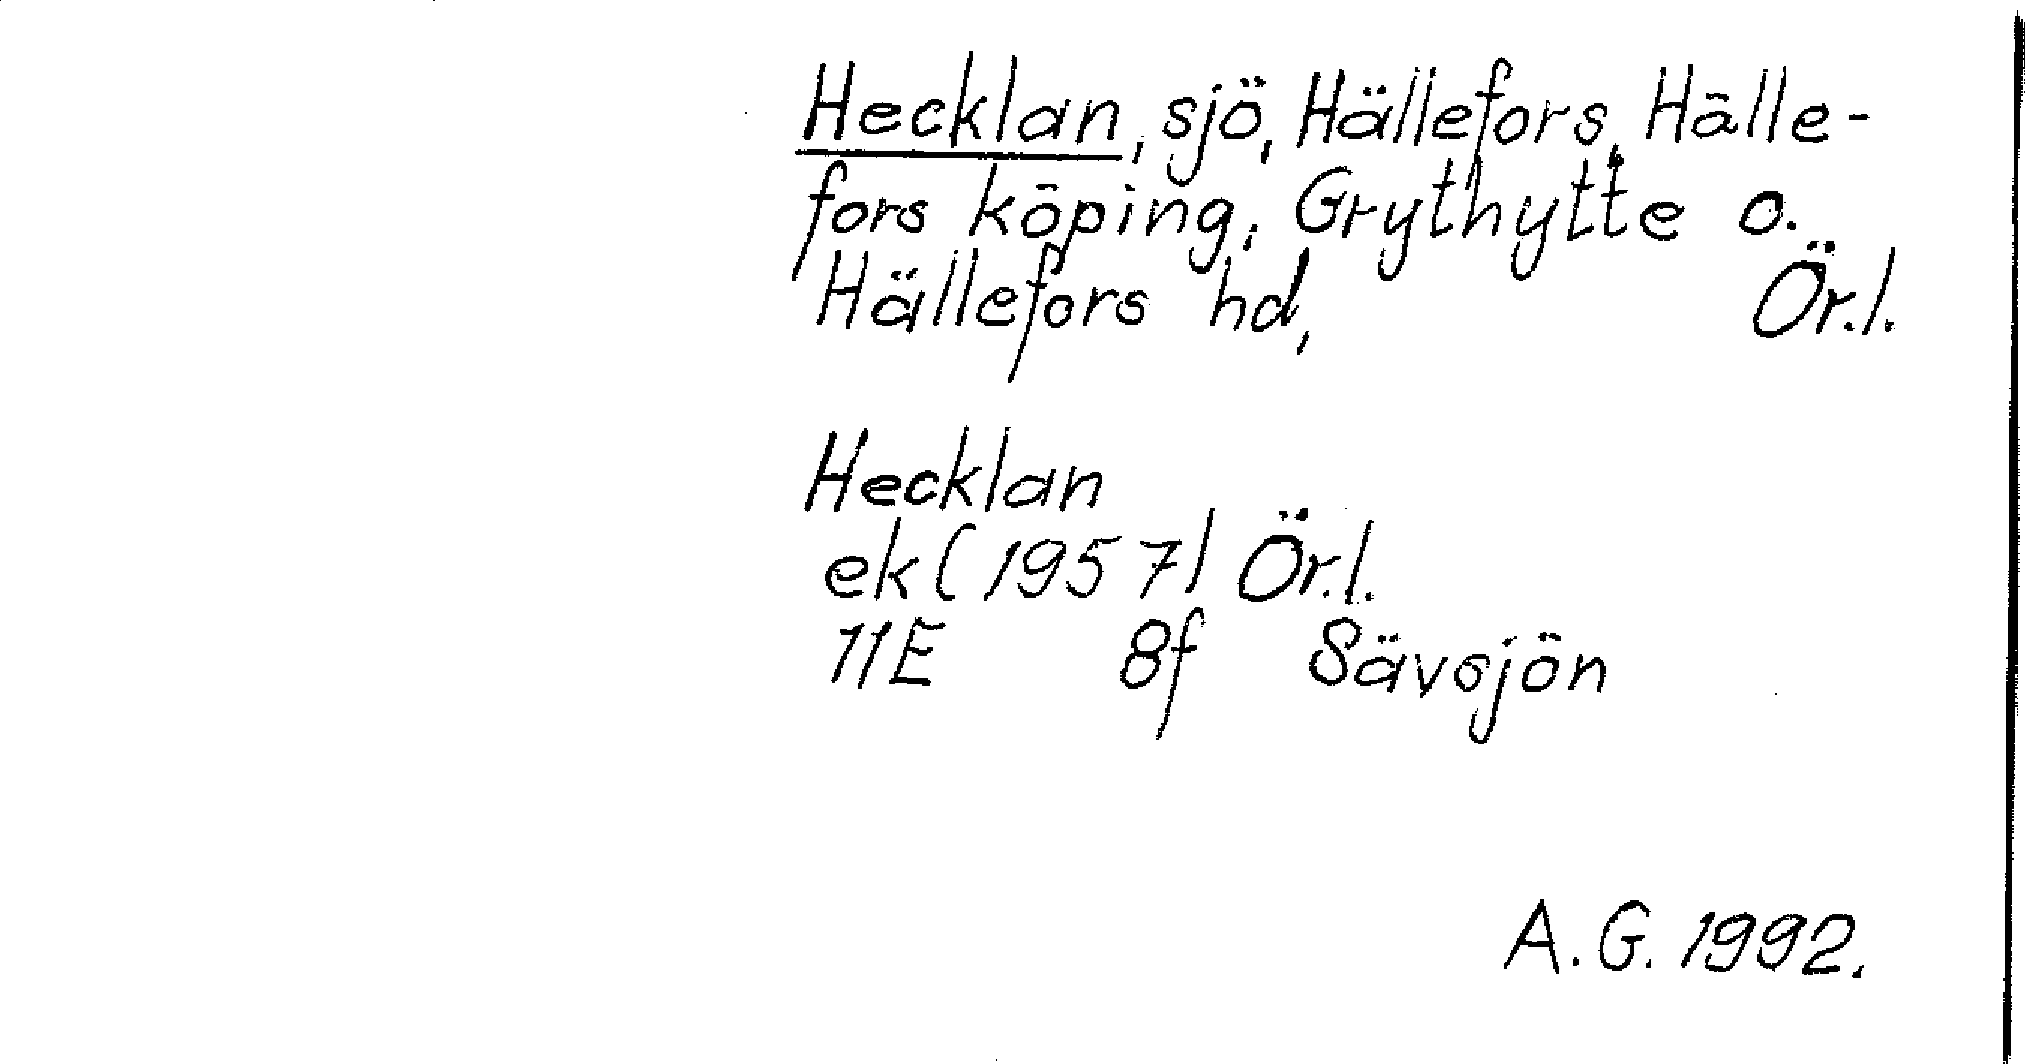 Hecklan, sjö, Hällefors, Hälle-
fors köping, Grythytte o.
Hällefors hd, Ör.l.
Hecklan
ek (1957) Ör.l.
11E 8f Sävsjön
A.G. 1992.